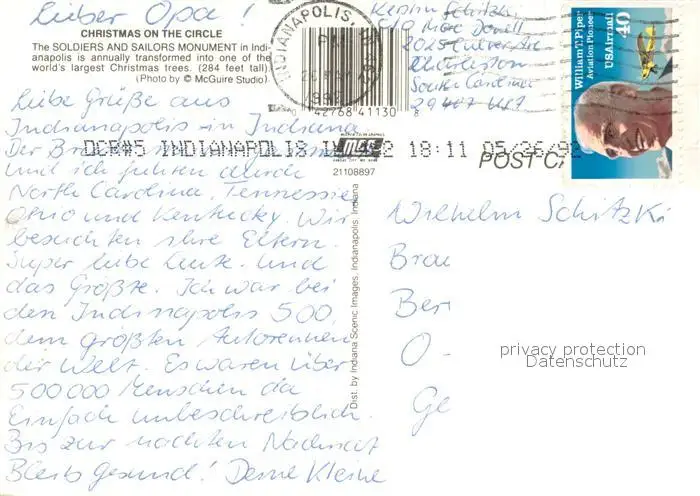 Lieber Opa!
CHRISTMAS ON THE CIRCLE
The SOLDIERS AND SAILORS MONUMENT in Indi-
anapolis is annually transformed into one of the
world's largest Christmas trees. (284 feet tall).
(Photo by © McGuire Studio)
Liebe Grüße aus
Indianapolis in Indiana
Der
und ich fuhren durch
North Carolina, Tennessie
Ohio und Kentucky. Wir
besuchten ihre Eltern.
Super liebe Leute. Und
das Größte. Ich war bei
den Indianapolis 500,
dem größten Autorennen
der Welt. Es waren über
500 000 Menschen da
Einfach unbeschreiblich.
Bis zur nächsten Nachricht
Bleib gesund! Deine Kleine
INDIANAPOLIS, IN
0 42768 41130 8
OCR#5 INDIANAPOLIS IN 18:11 05/26/92
21108897
Dist. by Indiana Scenic Images, Indianapolis, Indiana
Kerstin Schitzki
C/O
2025
Charleston
South Carolina
29407 USA
William T. Piper
Aviation Pioneer
USAirmail
40
POST CA
Wilhelm Schitzki
Brau
Ber
O-
Ge
privacy protection
Datenschutz